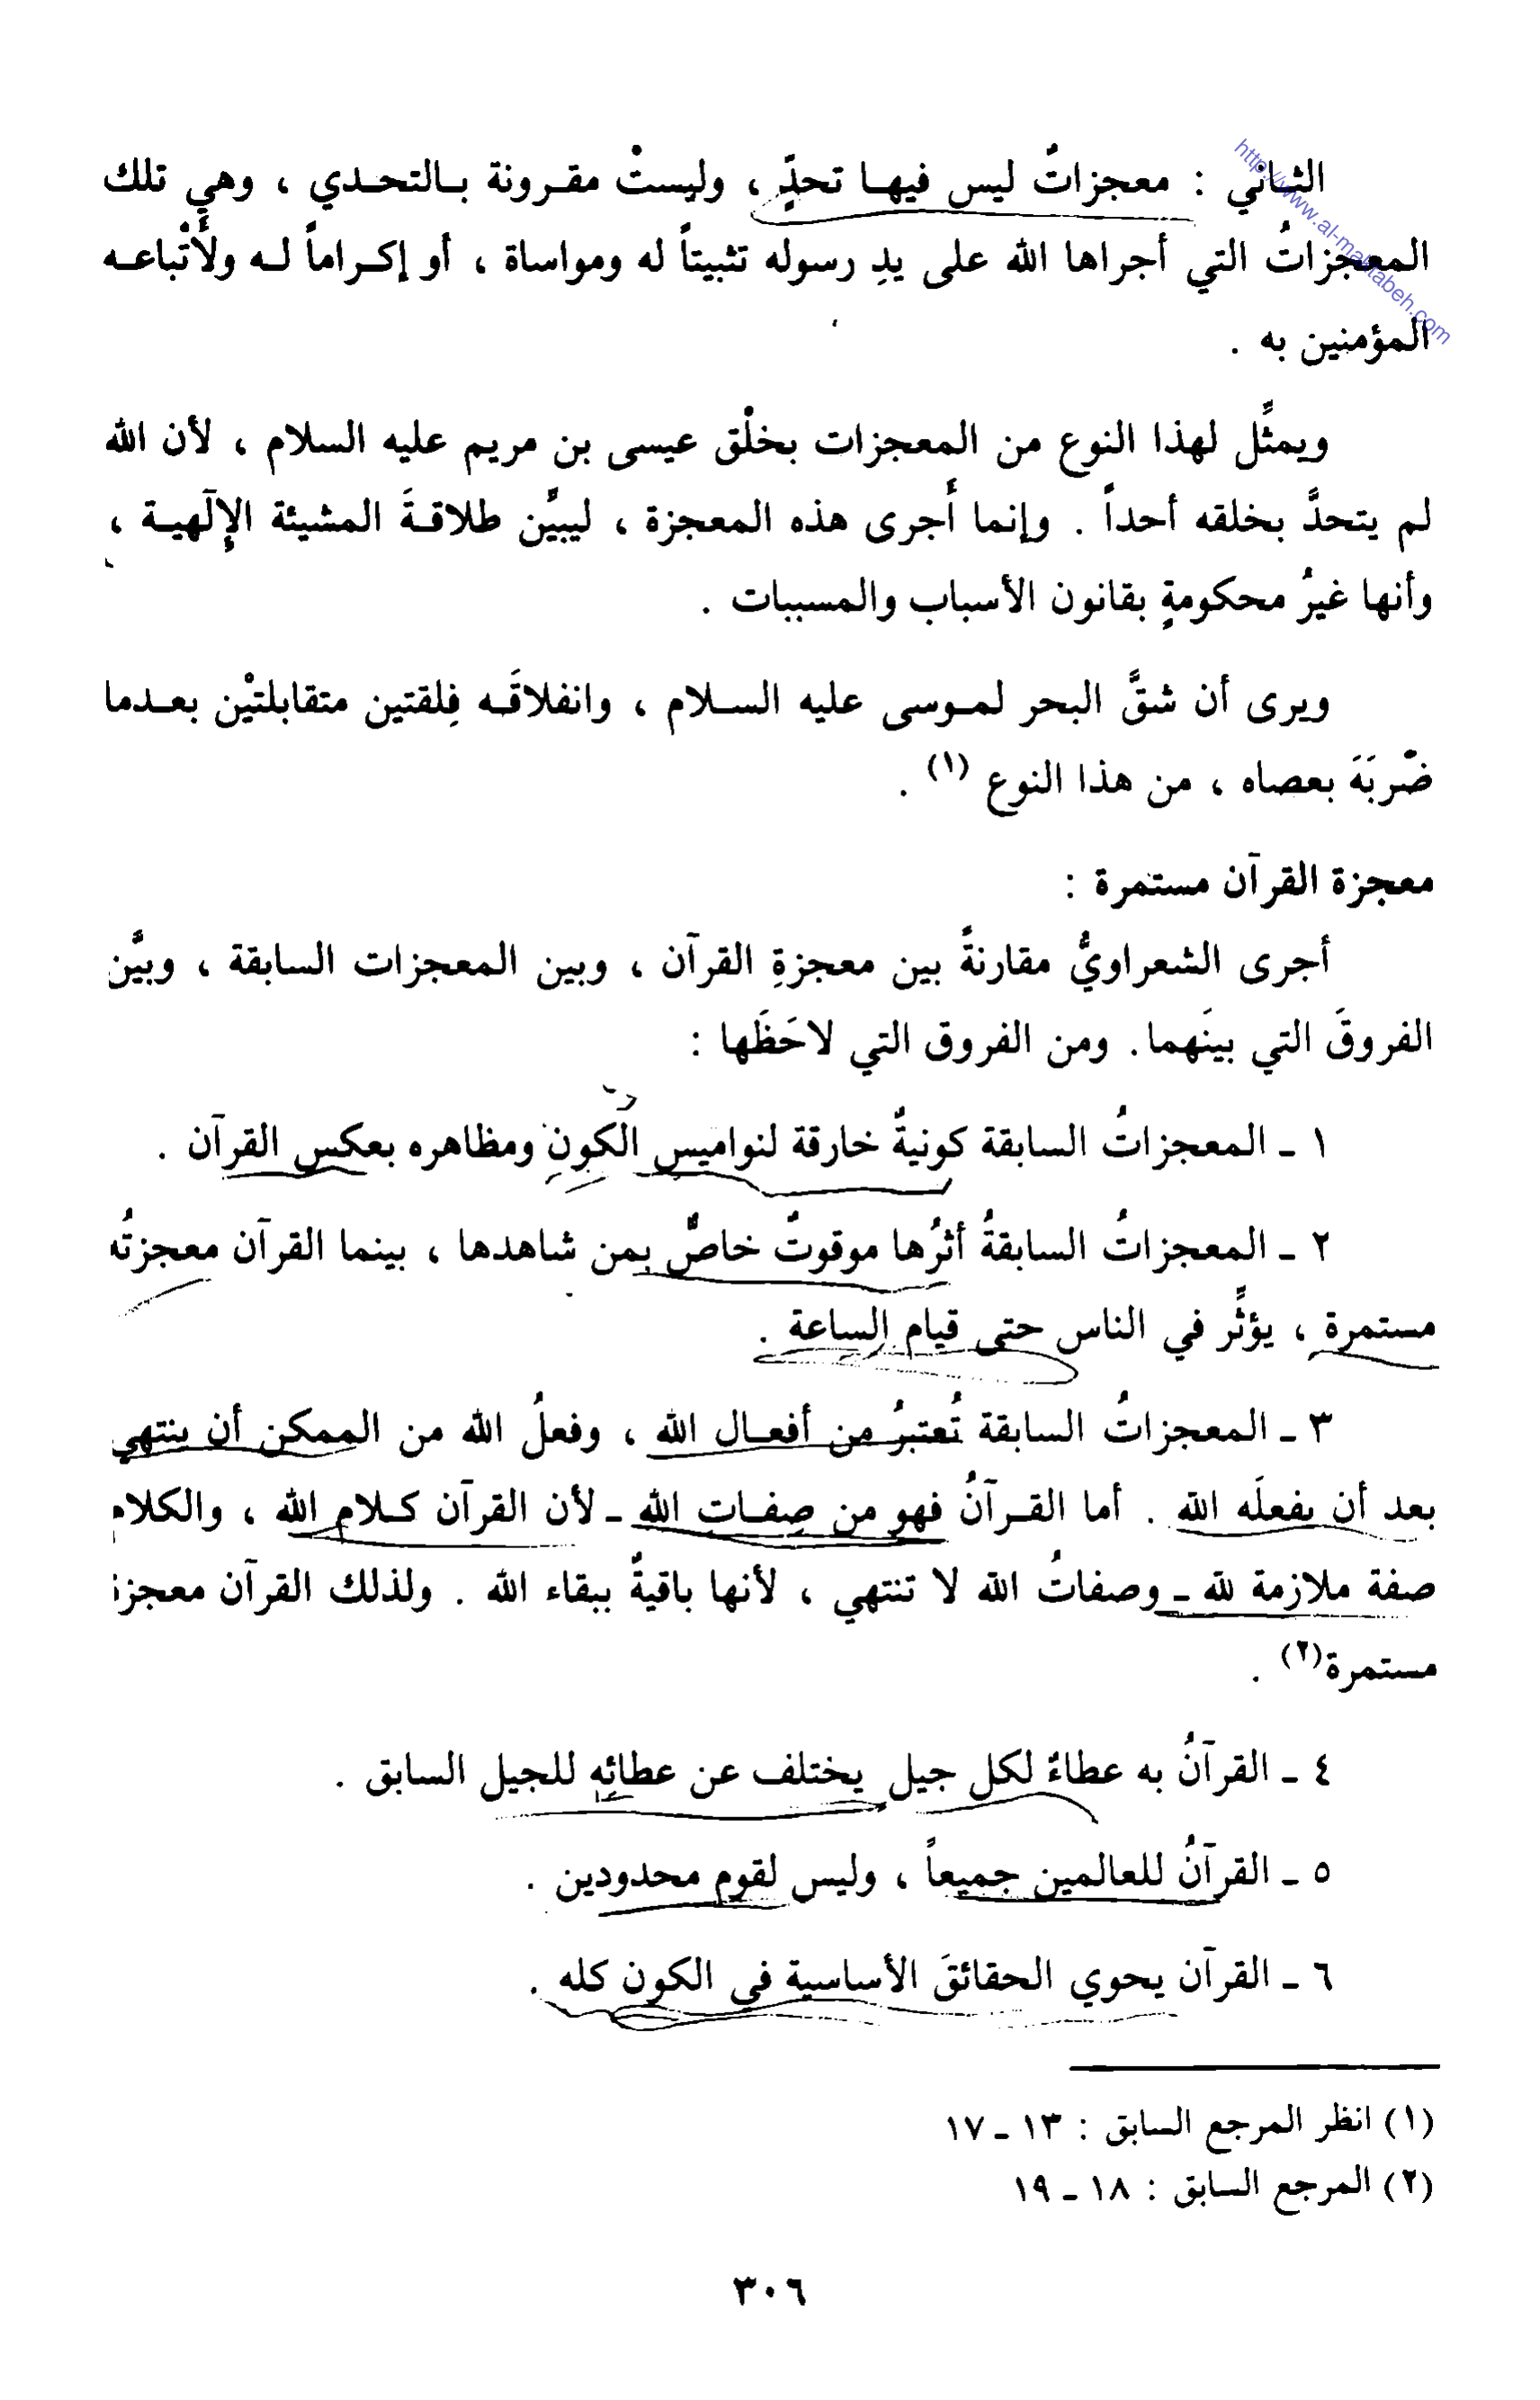 http://www.al-maktabeh.com
الثاني : معجزاتٌ ليس فيها تحدٍّ ، وليستْ مقرونة بالتحدي ، وهي تلك
المعجزاتُ التي أجراها الله على يدِ رسوله تثبيتاً له ومواساة ، أو إكراماً له ولأَتْباعه
المؤمنين به .
ويمثِّل لهذا النوع من المعجزات بخلْق عيسى بن مريم عليه السلام ، لأن الله
لم يتحدَّ بخلقه أحداً . وإنما أجرى هذه المعجزة ، ليبيِّن طلاقةَ المشيئة الإلٓهية ،
وأنها غيرُ محكومةٍ بقانون الأسباب والمسببات .
ويرى أن شقَّ البحر لموسى عليه السلام ، وانفلاقَه فِلقتين متقابلتيْن بعدما
ضْربَهَ بعصاه ، من هذا النوع (١) .
معجزة القرآن مستمرة :
أجرى الشعراويُّ مقارنةً بين معجزةِ القرآن ، وبين المعجزات السابقة ، وبيَّن
الفروقَ التي بينَهما. ومن الفروق التي لاحَظَها :
١ ـ المعجزاتُ السابقة كونيةٌ خارقة لنواميس الكون ومظاهره بعكس القرآن .
٢ ـ المعجزاتُ السابقةُ أثرُها موقوتٌ خاصٌّ بمن شاهدها ، بينما القرآن معجزتُه
مستمرة ، يؤثِّر في الناس حتى قيام الساعة .
٣ ـ المعجزاتُ السابقة تُعتبرُ من أفعال الله ، وفعلُ الله من الممكن أن ينتهي
بعد أن يفعلَه الله . أما القرآنُ فهو من صِفاتِ الله ـ لأن القرآن كلام الله ، والكلام
صفة ملازمة لله ـ وصفاتُ الله لا تنتهي ، لأنها باقيةٌ ببقاء الله . ولذلك القرآن معجزة
مستمرة(٢) .
٤ ـ القرآنُ به عطاءٌ لكل جيل يختلف عن عطائِه للجيل السابق .
٥ ـ القرآنُ للعالمين جميعاً ، وليس لقوم محدودين .
٦ ـ القرآن يحوي الحقائقَ الأساسية في الكون كله .
(١) انظر المرجع السابق : ١٣ ـ ١٧
(٢) المرجع السابق : ١٨ ـ ١٩
٣٠٦